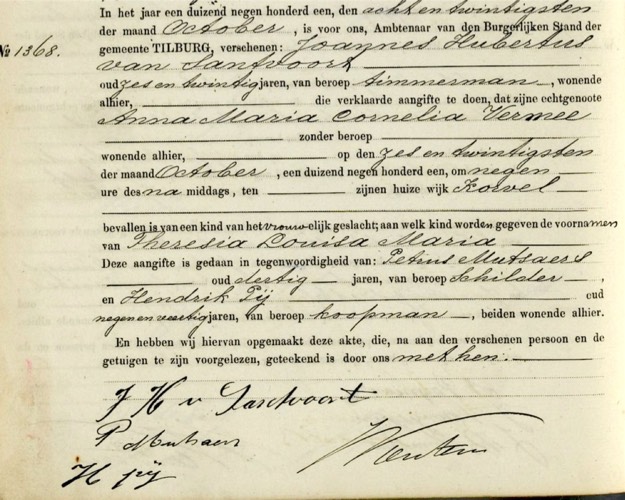 In het jaar een duizend negen honderd een, den acht en twintigsten
der maand October, is voor ons, Ambtenaar van den Burgerlijken Stand der
No 1368. gemeente TILBURG, verschenen: Joannes Hubertus
van Santvoort
oud zes en twintig jaren, van beroep timmerman, wonende
alhier, die verklaarde aangifte te doen, dat zijne echtgenoote
Anna Maria Cornelia Vermee
zonder beroep
wonende alhier, op den zes en twintigsten
der maand October, een duizend negen honderd een, om negen
ure des na middags, ten zijnen huize wijk Korvel
bevallen is van een kind van het vrouwelijk geslacht; aan welk kind worden gegeven de voornamen
van Theresia Louisa Maria
Deze aangifte is gedaan in tegenwoordigheid van: Petrus Mutsaers
oud dertig jaren, van beroep schilder,
en Hendrik Pij oud
negen en veertig jaren, van beroep koopman, beiden wonende alhier.
En hebben wij hiervan opgemaakt deze akte, die, na aan den verschenen persoon en de
getuigen te zijn voorgelezen, geteekend is door ons met hen.
J H v Santvoort
P Mutsaers
H pij